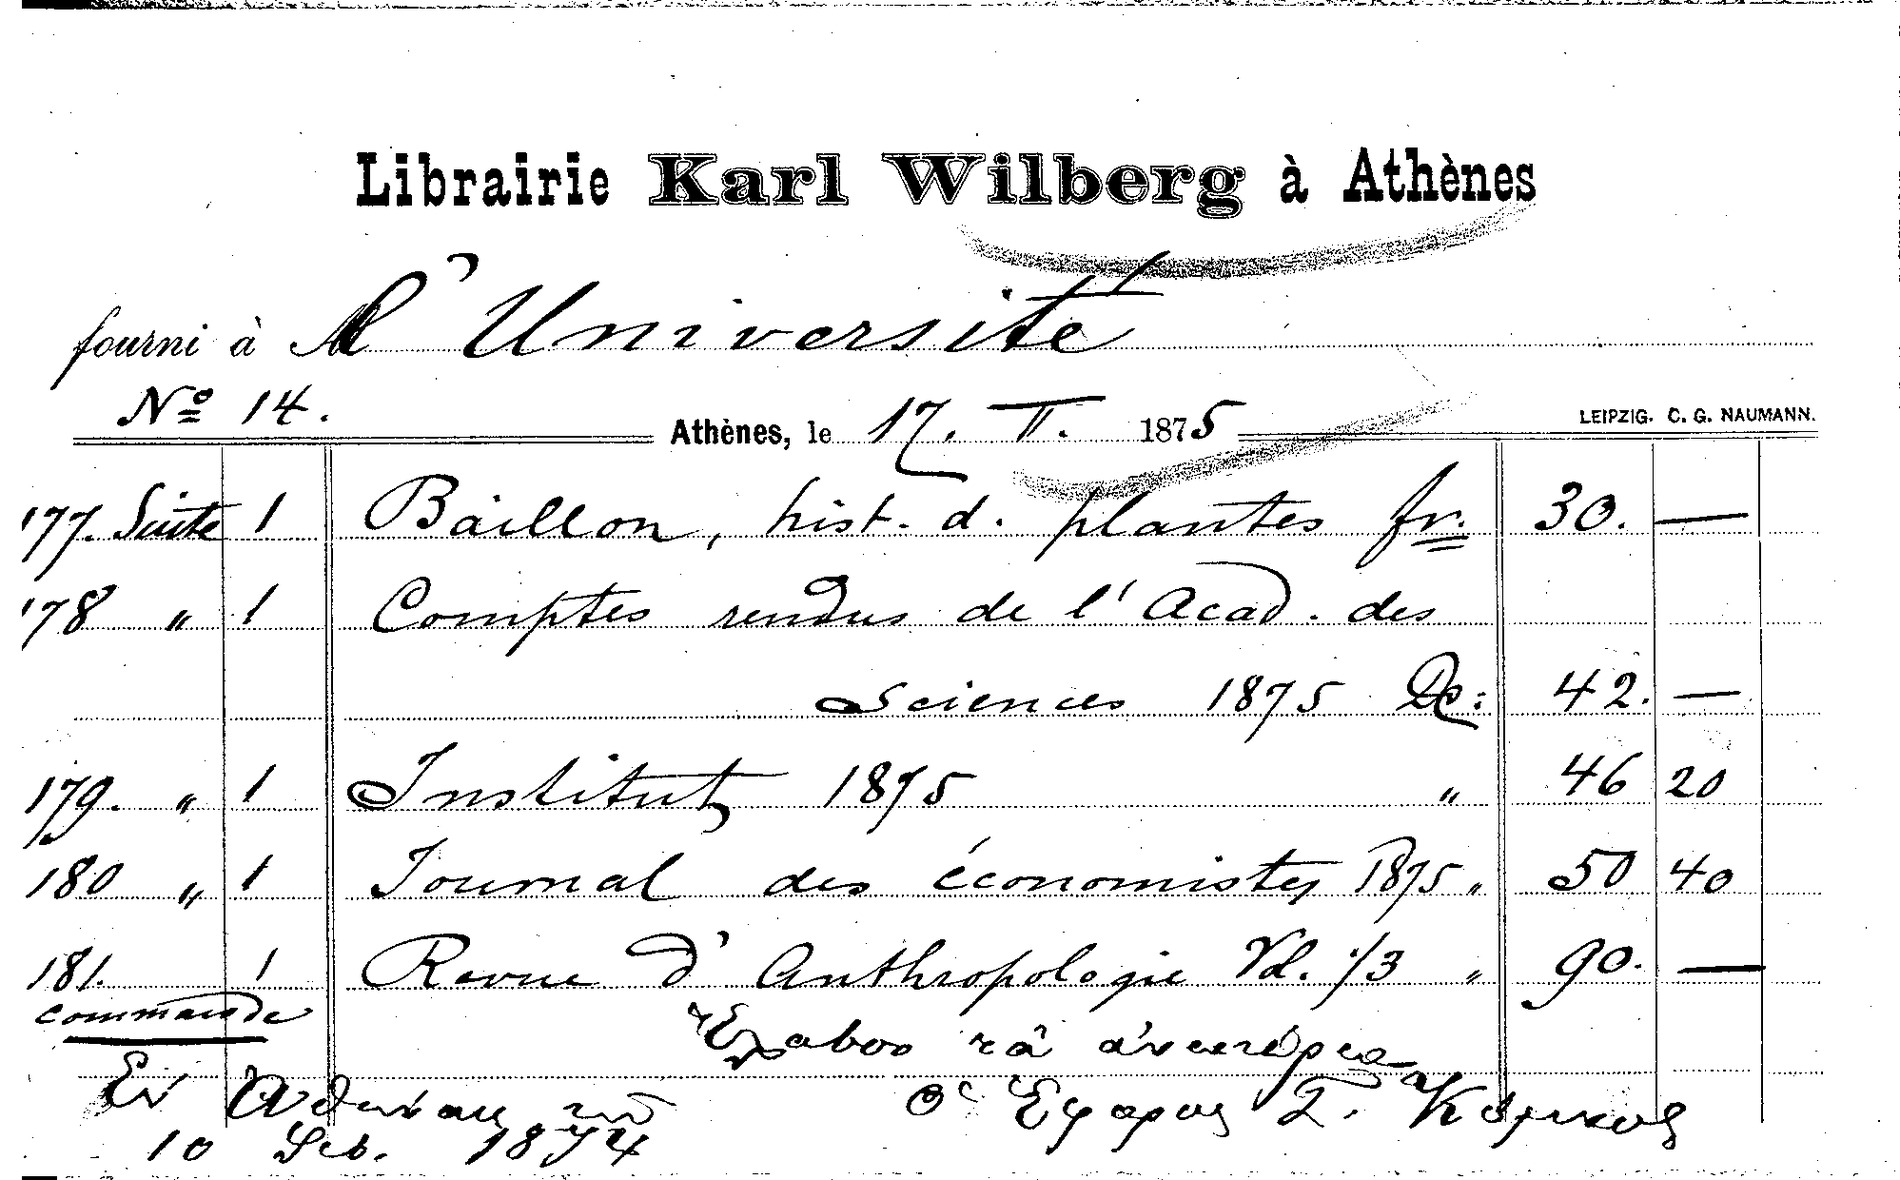 Librairie Karl Wilberg à Athènes
fourni à l'Université
No 14.
LEIPZIG. C. G. NAUMANN.
Athènes, le 17. II. 1875
177. Suite 1 Baillon, hist. d. plantes fr. 30. —
178 " 1 Comptes rendus de l'Acad. des
Sciences 1875 42. —
179. " 1 Institut 1875 " 46 20
180 " 1 Journal des économistes 1875 " 50 40
181. 1 Revue d'Anthropologie Vol. 1/3 " 90. —
commande
Ἔλαβον τὰ ἀνωτέρω
Ἐν Ἀθήναις τῇ ὁ Ἔφορος
10 1874